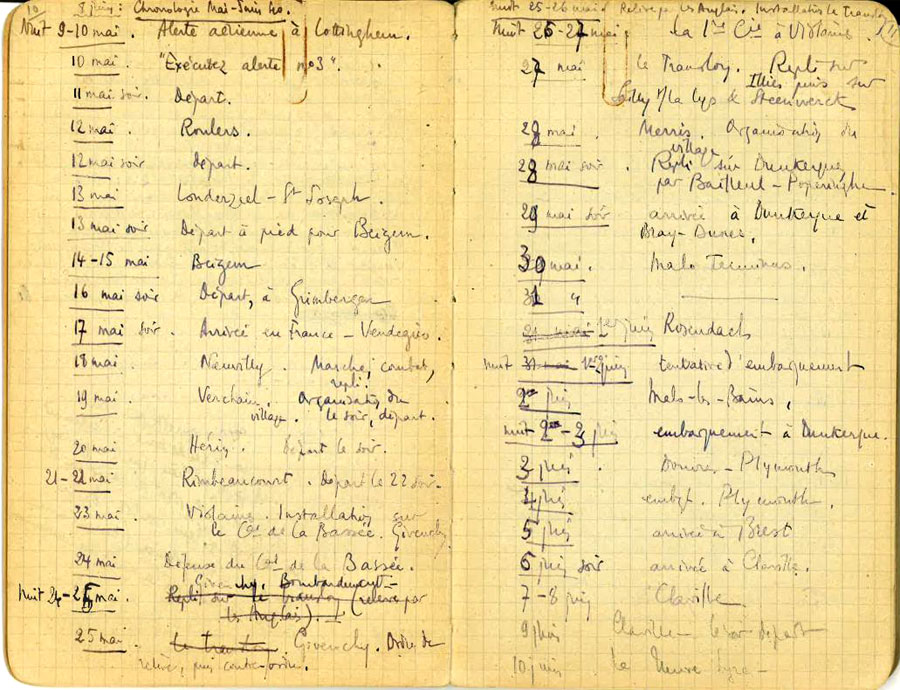 10 8 juin : Chronologie Mai-Juin 40.
Nuit 9-10 mai. Alerte aérienne à Lottinghem.
10 mai "Exécutez alerte n°3".
11 mai soir. Départ.
12 mai. Roulers.
12 mai soir départ.
13 mai Londerzeel - St Joseph.
13 mai soir Départ à pied pour Beigem.
14-15 mai Beigem
16 mai soir Départ, à Grimbergen
17 mai soir. Arrivée en France - Vendegies.
18 mai. Neuvilly. Marche, combat,
repli.
19 mai Verchain. Organisation du
village. le soir, départ.
20 mai Hérin. Départ le soir.
21-22 mai Rimbeaucourt. Départ le 22 soir.
23 mai Violaine. Installation sur
le Cal de La Bassée. Givenchy.
24 mai Défense du Cal de la Bassée.
Givenchy. Bombardement
Nuit 24-25 mai. Repli sur le transloy (relève par
les Anglais).
25 mai Le transloy. Givenchy. Ordre de
relève, puis contre-ordre.
nuit 25-26 mai. Relève par les Anglais. Installation le Transloy
11
Nuit 26-27 mai. la 1re Cie à Violaines.
27 mai le Transloy. Repli sur
Illies puis sur
Sailly s/la Lys & Steenwerck
28 mai. Merris. Organisation du
village
28 mai soir. Repli sur Dunkerque,
par Bailleul - Poperinghe.
29 mai soir arrivée à Dunkerque et
Bray-Dunes.
30 mai. Malo Terminus.
31 "
31 mai 1er juin Rosendael
nuit 31 mai 1er-2 juin tentative d'embarquement
2 juin Malo-les-Bains,
nuit 2-3 juin embarquement à Dunkerque.
3 juin. Douvres - Plymouth
4 juin embqt. Plymouth.
5 juin arrivée à Brest
6 juin soir arrivée à Claville.
7-8 juin Claville.
9 juin Claville le soir départ
10 juin La Neuve Lyre -